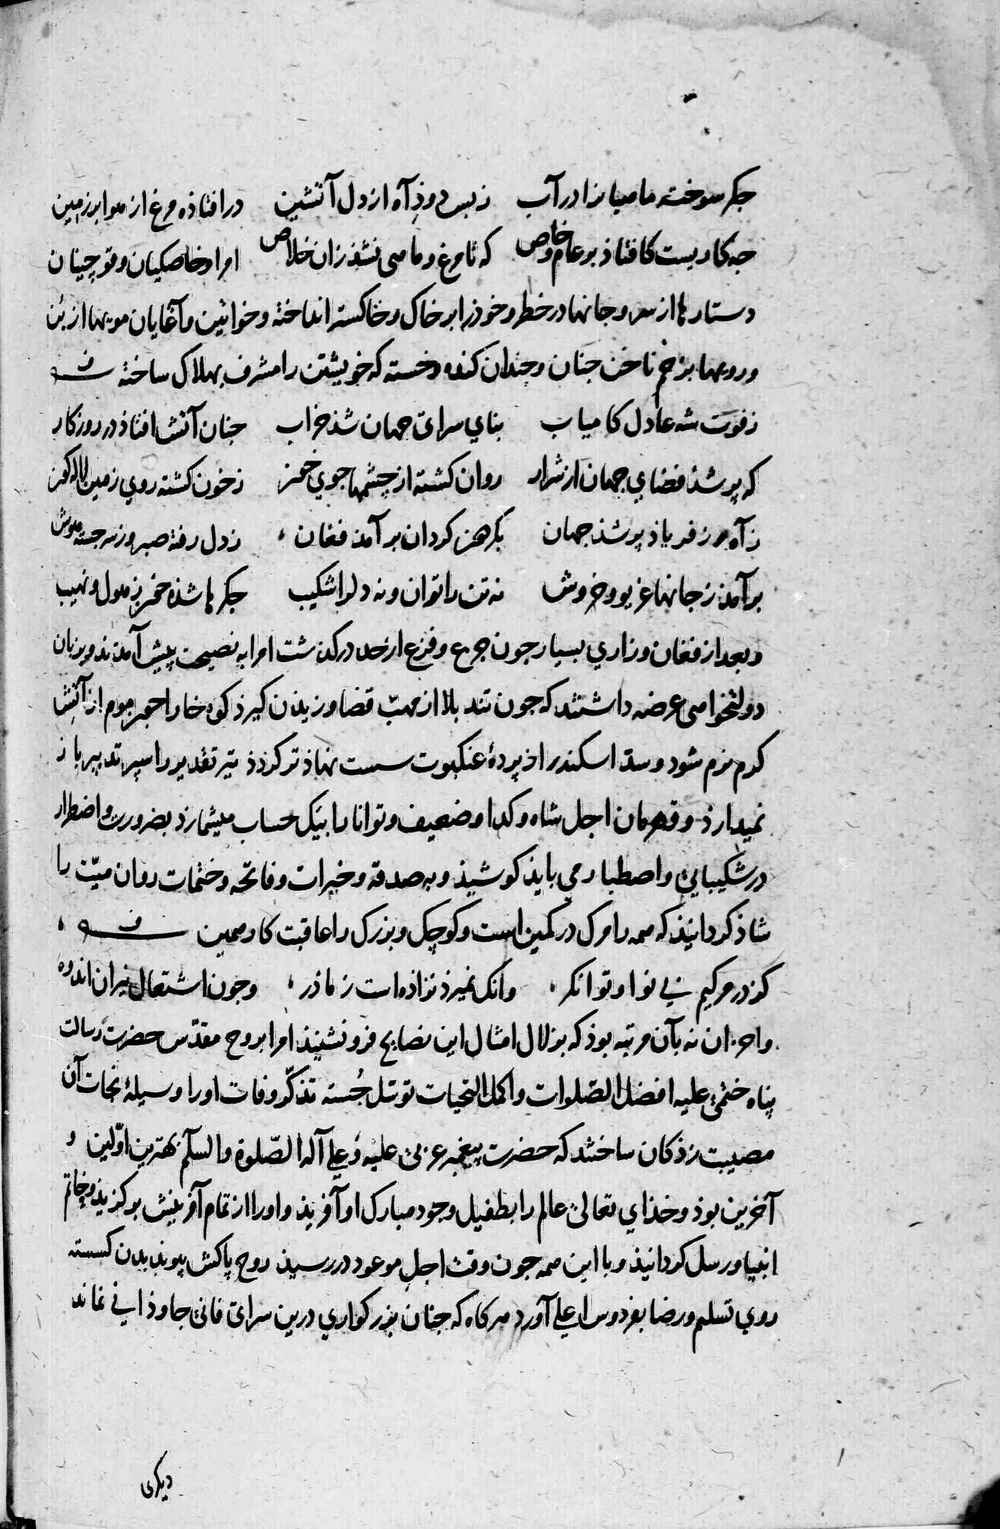 جکر سوخته ماهیانرا در آب زبس دوذ آه از دل آتشین در افتاذه مرغ از هوا بر زمین
جه کاریست کافتاذ بر عام وخاص که تا مرغ و ماهی نشذ زان خلاص امرا و خاصکیان و قوچیان
دستارها از سر و جانها در خطر و خوذ را بر خاک و خاکستر انداخته و خواتین و آغایان مویها از بُن
و رویها بزخم ناخن جنان و جندان کنده و خسته که خویشتن را مشرف بهلاک ساخته
ز فوت شه عادل کامیاب بنای سرای جهان شذ خراب جنان آتش افتاذ در روزکار
که پر شذ فضاي جهان از شرار روان کشته از چشمها جوي خون ز خون کشته روي زمین لاله کون
ز آه و ز فریاذ پر شذ جهان بکردون کردان بر آمذ فغان ز دل رفته صبر و ز سر جسته هوش
بر آمذ ز جانها غریو و خروش نه تن را توان و نه دل را شکیب جکرها شذه خون ز هول و نهیب
و بعد از فغان و زاري بسیار جون جزع و فزع از حد در کذشت امرا به نصیحت پیش آمدند و بزبان
دولتخواهی عرضه داشتند که جون تند بلا از مهبّ قضا وزیذن کیرذ کوه خارا جون موم از آتش
کرم نرم شوذ و سدّ اسکندر از پردۀ عنکبوت سست نهاذتر کردذ تیر تقدیر را سپر تدبیر باز
نمیدارذ و قهرمان اجل شاه و کدا و ضعیف و توانا را بیک حساب میشمارذ بضرورت و اضطرار
در شکیبایي و اصطبار می بایذ کوشیذ و به صدقه و خیرات و فاتحه و ختمات روان میّت را
شاذ کردانیذ که همه را مرک در کمین است و کوچک و بزرک را عاقبت کار همین
کوذر مرکیم بی نوا و توانکر وانک نمیرذ نزاده است ز ماذر و جون اشتعال نیران اندوه
و احزان نه بآن مرتبه بوذ که بزلال امثال این نصایح فرو نشیند امرا بروح مقدّس حضرت رسالت
پناه ختمی علیه افضل الصّلوات و اکمل التحیات توسّل جُسته تذکّر وفات او را وسیلۀ نجات آن
مصیبت زذکان ساختند که حضرت پیغمبر عربی علیه و علی آله الصّلوة والسلّم بهترین اوّلین و
آخرین بوذ و خذاي تعالی عالم را بطفیل وجود مبارک او آفریذ و او را از تمام آفرینش بر کزیذ و خاتم
انبیا و رسل کردانیذ و با این همه جون وقت اجل موعود در رسیذ روح پاکش پیوند بدن کسسته
روي تسلیم و رضا بفردوس اعلی آورد هرکاه که جنان بزرکواري درین سرای فانی جاوذانی نماند
دیکری